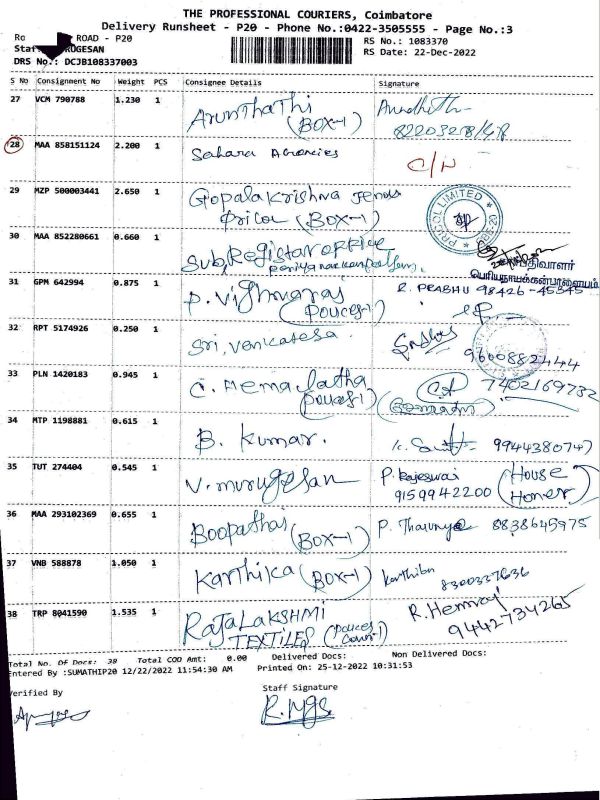 THE PROFESSIONAL COURIERS, Coimbatore
Delivery Runsheet - P20 - Phone No.:0422-3505555 - Page No.:3
Ro ROAD - P20
RS No.: 1083370
Staf RUGESAN
RS Date: 22-Dec-2022
DRS No.: DCJB108337003
S No Consignment No Weight PCS Consignee Details Signature
27 VCM 790788 1.230 1 Arunthathi
(BOX-1)
28 MAA 858151124 2.200 1 Sahara Agencies C/N
29 MZP 500003441 2.650 1 Gopalakrishna
Pricol (BOX-1)
PRICOL LIMITED
30 MAA 852280661 0.660 1 Sub, Registar office
பெரியநாயக்கன்பாளையம்
31 GPM 642994 0.875 1 P. Vighnaras R. PRABHU 98426-45345
(POUCES-1)
32 RPT 5174926 0.250 1 Sri, Venkatesa 9600882444
33 PLN 1420183 0.945 1 C. Hema latha 7402169732
(POUCES-1)
34 MTP 1198881 0.615 1 B. Kumar. 9944380747
35 TUT 274404 0.545 1 V. Murugesan P. Rajeswai (House
9159942200 Honer)
36 MAA 293102369 0.655 1 Boopathai P. Tharunya 8838645975
(BOX-1)
37 VNB 588878 1.050 1 Karthika (BOX-1) Karthika 8300337636
38 TRP 8041590 1.535 1 RAJALAKSHMI R. Hemraj
TEXTILES 9442-734265
Total No. Of Docs: 38 Total COD Amt: 0.00 Delivered Docs: Non Delivered Docs:
Entered By :SUMATHIP20 12/22/2022 11:54:30 AM Printed On: 25-12-2022 10:31:53
Verified By Staff Signature
R. Mgs